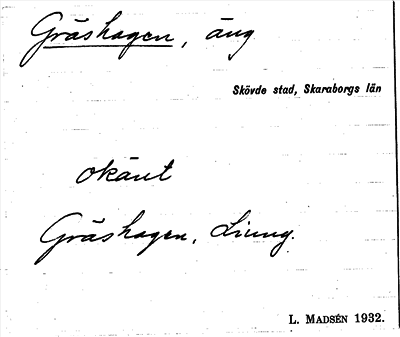 Gräshagen, äng
Skövde stad, Skaraborgs län
okänt
Gräshagen, Liung.
L. MADSÉN 1932.